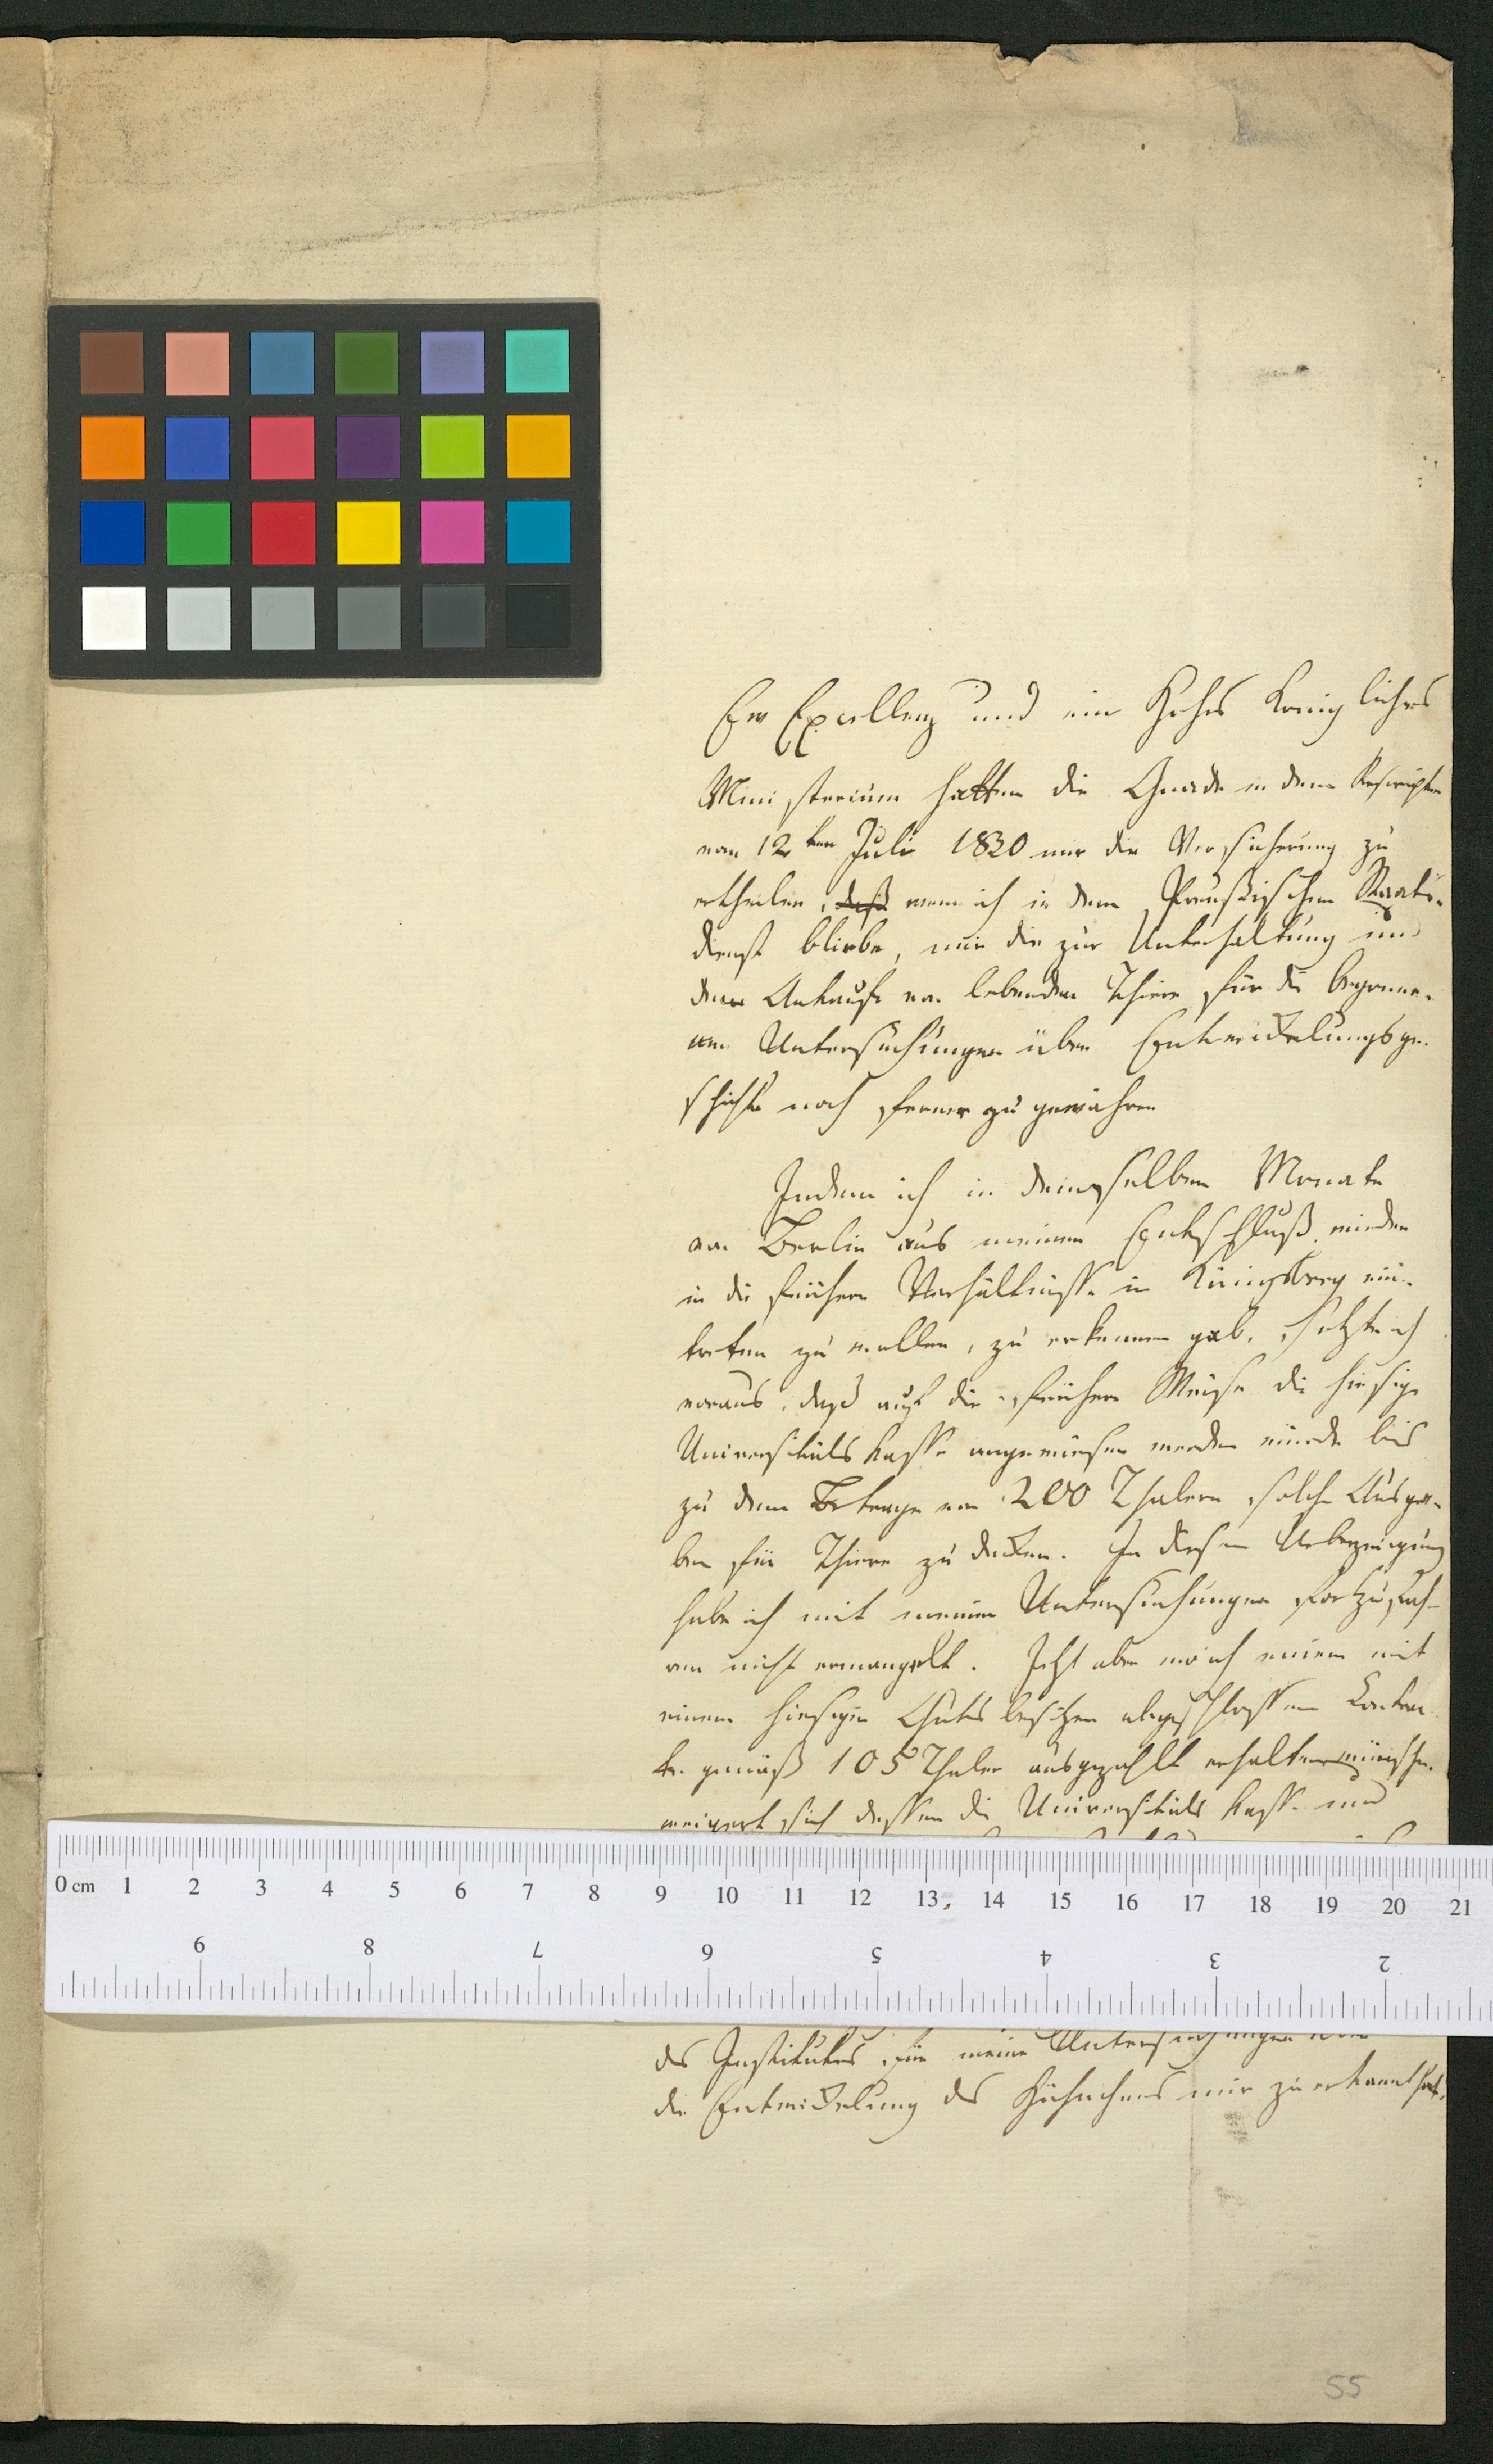 Ew Excellenz und ein Hohes Königliches
Ministerium hatten die Gnade in dem Rescripte
vom 12ten Juli 1830 mir die Versicherung zu
ertheilen, daß wenn ich in dem Preußischen Staats-
dienst bliebe, mir die zur Unterhaltung und
dem Ankaufe von lebenden Thiere für die begonne-
nen Untersuchungen über Entwickelungsge-
schichte noch ferner zu gewähren
Indem ich in demselben Monate
von Berlin aus meinen Entschluß wieder
in die frühern Verhältnisse in Königsberg ein-
treten zu wollen, zu erkennen gab, setzte ich
voraus, daß auf die frühere Weise die hiesige
Universitäts kasse angewiesen werden würde bis
zu dem Betrage von 200 Thalern solche Ausga-
ben für Thiere zu decken. In dieser Ueberzeugung
habe ich mit meinen Untersuchungen fortzufah-
ren nicht ermangelt. Jetzt aber wo ich einem mit
einem hiesigen Gutsbesitzer abgeschlossenen Contrac-
te gemäß 105 Thaler ausgezahlt erhalten wünsche
weigert sich dessen die Universitäts kasse und
0 cm 1 2 3 4 5 6 7 8 9 10 11 12 13 14 15 16 17 18 19 20 21
9 8 7 6 5 4 3 2
des Institutes für meine Untersuchungen über
die Entwickelung des Hühnchens mir zuerkannt hat,
55